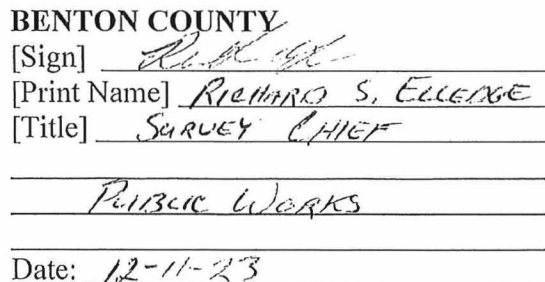 BENTON COUNTY
[Sign]
[Print Name] RICHARD S. ELLEDGE
[Title] SURVEY CHIEF
PUBLIC WORKS
Date: 12-11-23